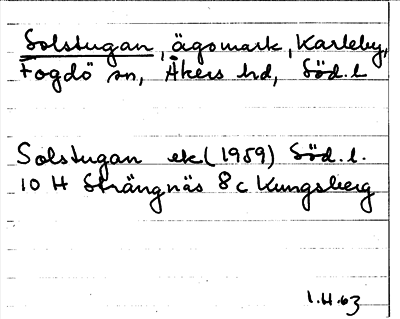 Solstugan, ägomark, Karleby,
Fogdö sn, Åkers hd, Söd. l
Solstugan ek (1959) Söd. l.
10 H Strängnäs 8 c Kungsberg
1.H.63